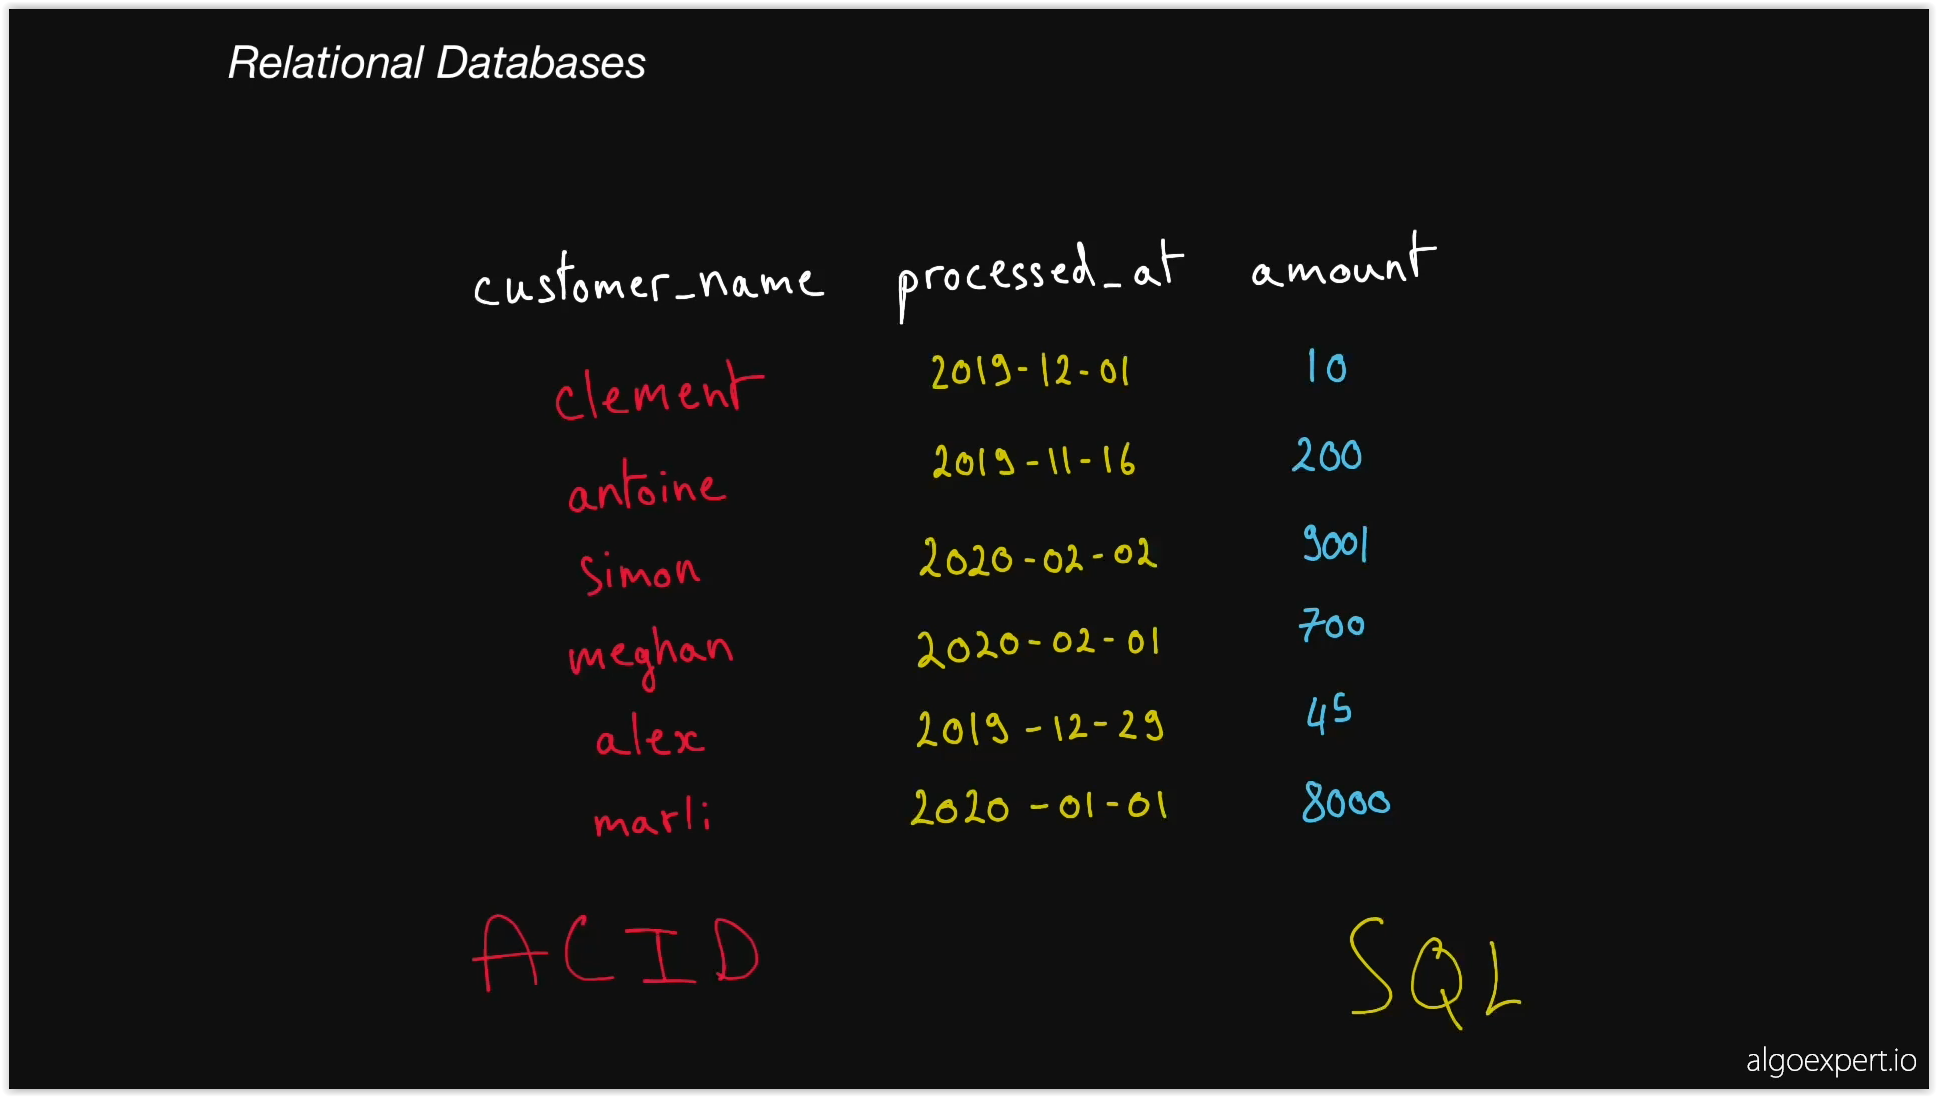 Relational Databases
customer_name processed_at amount
clement 2019-12-01 10
antoine 2019-11-16 200
simon 2020-02-02 9001
meghan 2020-02-01 700
alex 2019-12-29 45
marli 2020-01-01 8000
ACID SQL
algoexpert.io